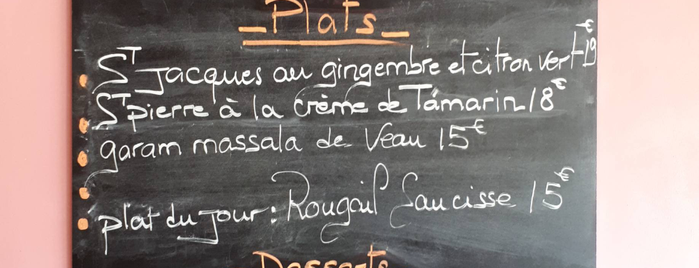 Plats
St Jacques au gingembre et citron vert 19€
St pierre à la crème de Tamarin 18€
garam massala de Veau 15€
plat du jour : Rougail Saucisse 15€
Desserts